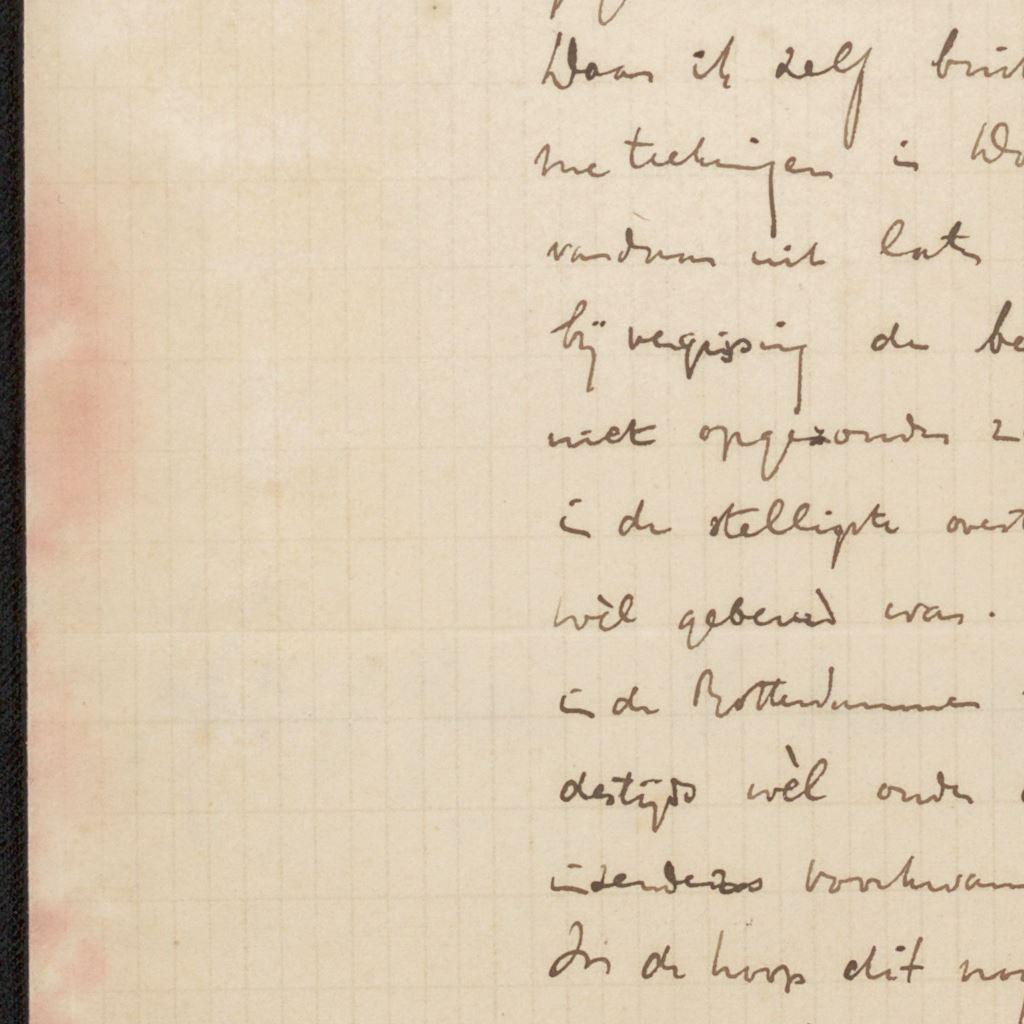 Daar ik zelf buit
me teekeningen in Do
vandaar uit laten
bij vergissing de be
niet opgezonden z
in de stelligste overt
wèl gebeurd was.
in de Rotterdammer
destijds wèl onder
inzenders voorkwam
In de hoop dit no